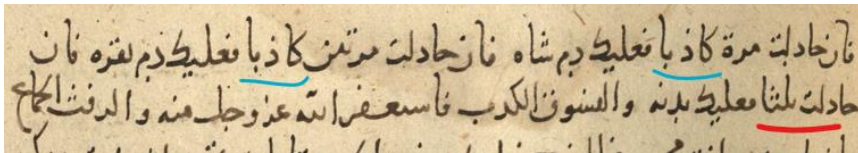 فان جادلت مرة كاذبا فعليك دم شاه فان جادلت مرتين كاذبا فعليك دم بقره فان
جادلت ثلثا فعليك بدنه والفسوق الكذب فاستغفر الله عز وجل منه والرفث الجماع